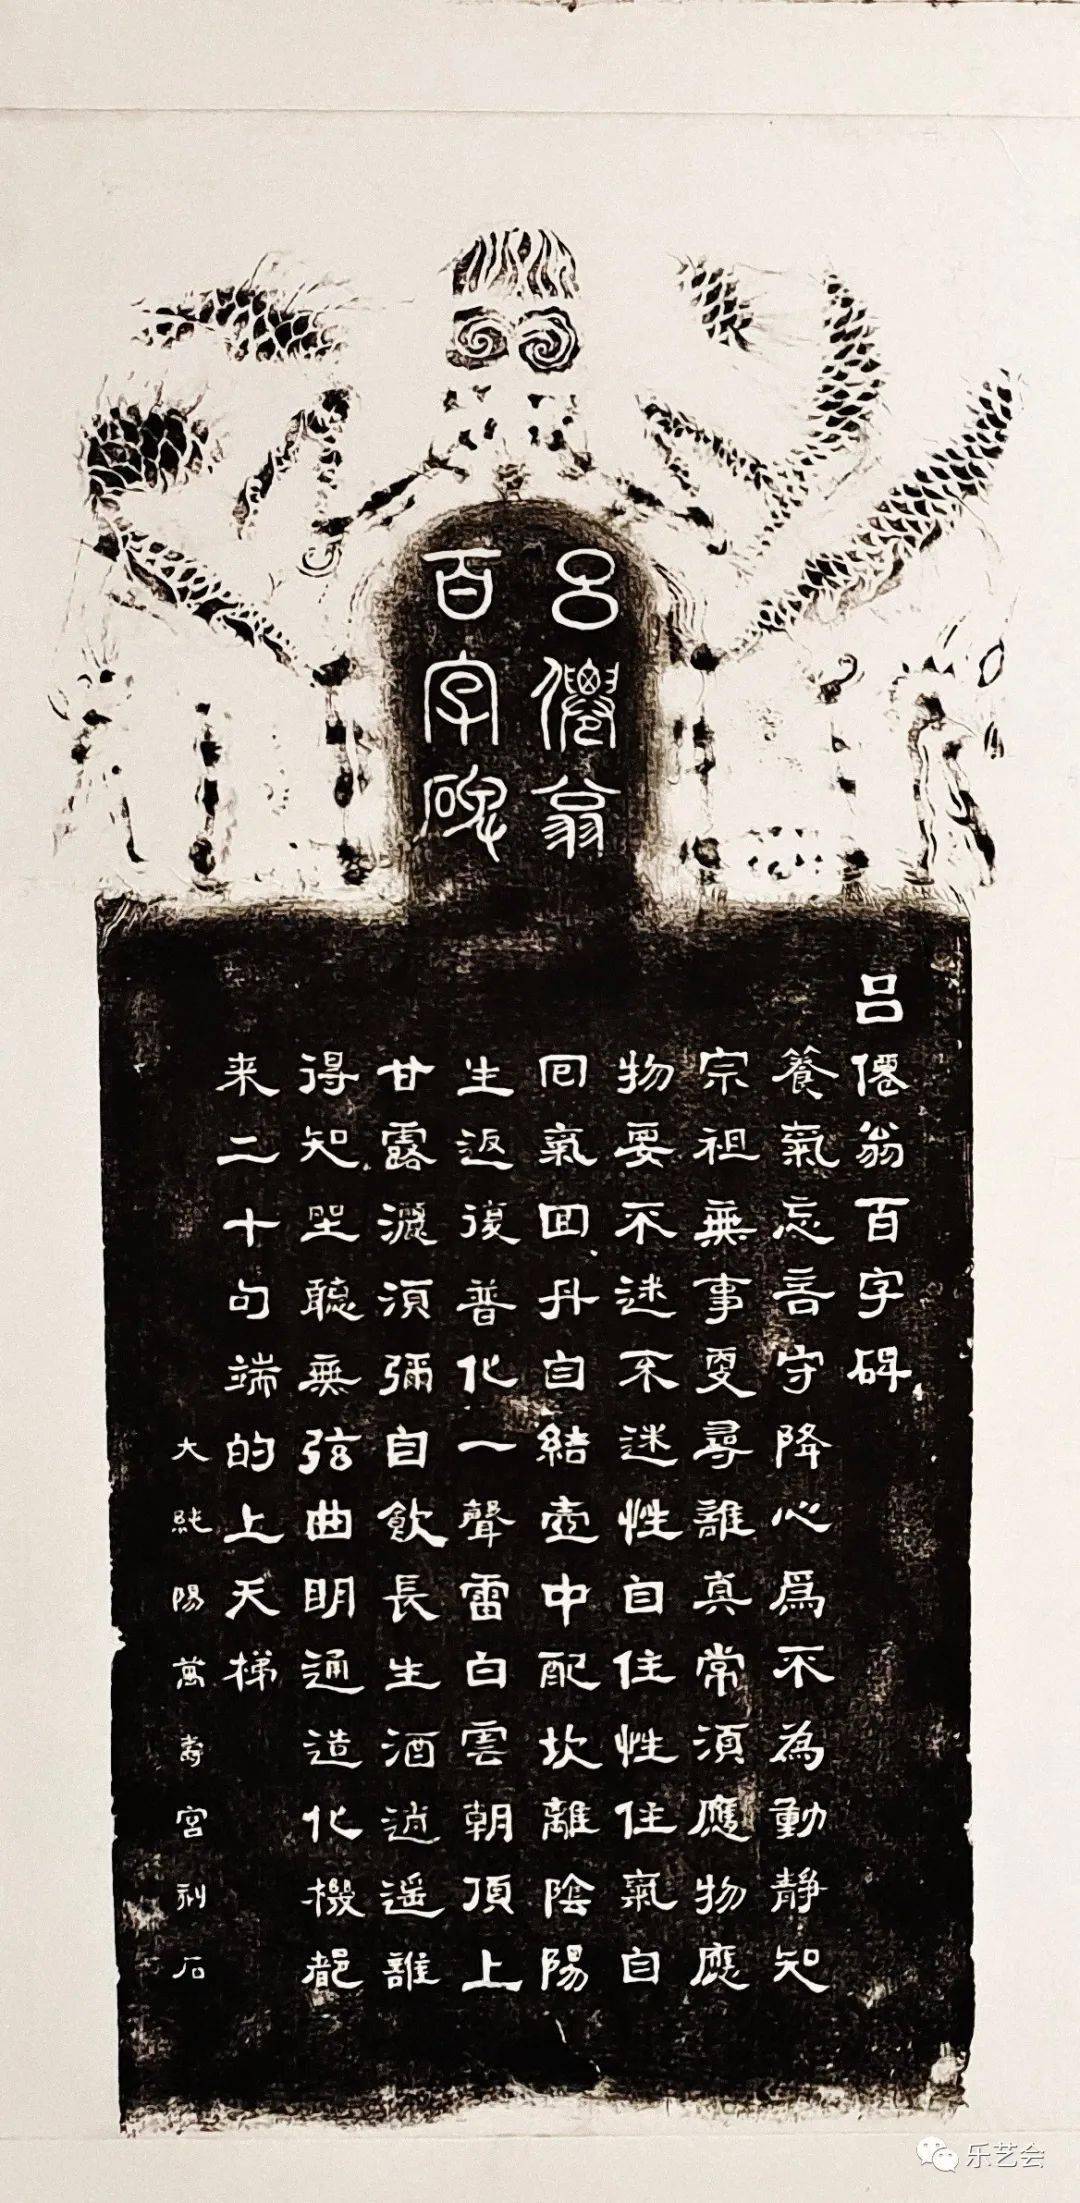 呂僊翁
百字碑
呂僊翁百字碑
養氣忘言守降心爲不為動靜知
宗祖無事更尋誰真常須應物應
物要不迷不迷性自住性住氣自
回氣回丹自結壺中配坎離陰陽
生返復普化一聲雷白雲朝頂上
甘露灑須彌自飲長生酒逍遥誰
得知坐聽無弦曲明通造化機都
来二十句端的上天梯
大純陽萬壽宮刻石
乐艺会